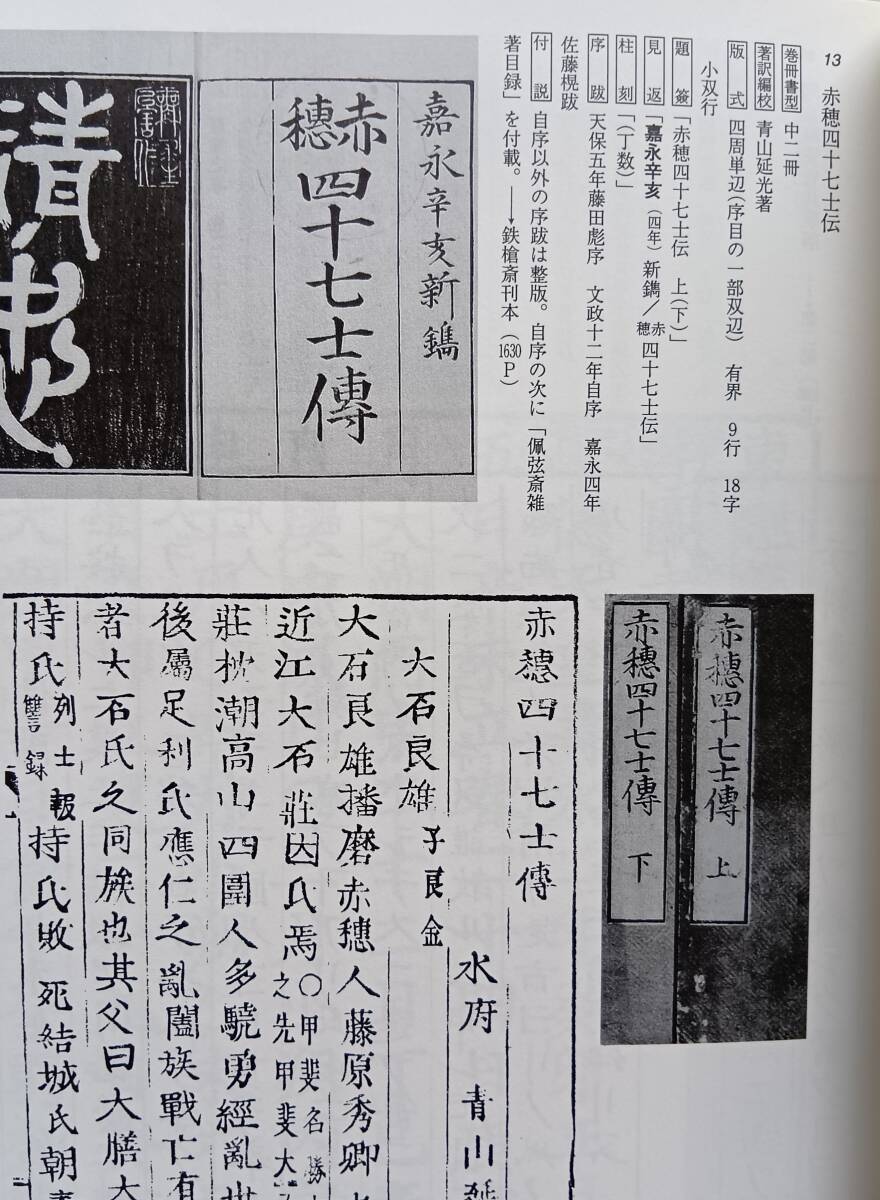 13 赤穂四十七士伝
巻冊書型 中二冊
著訳編校 青山延光著
版式 四周単辺(序目の一部双辺) 有界 9行 18字
小双行
題簽 「赤穂四十七士伝 上(下)」
見返 「嘉永辛亥(四年)新鐫/赤穂四十七士伝」
柱刻 「(丁数)」
序跋 天保五年藤田彪序 文政十二年自序 嘉永四年
佐藤榥跋
付説 自序以外の序跋は整版。自序の次に「佩弦斎雑
著目録」を付載。→鉄槍斎刊本(1630P)
嘉永辛亥新鐫
赤穗四十七士傳
赤穗四十七士傳 上
赤穗四十七士傳 下
赤穗四十七士傳
水府 青山延
大石良雄 子良金
大石良雄播磨赤穗人藤原秀卿
近江大石莊因氏焉 〇甲斐名勝
之先甲斐大
莊枕潮高山四圍人多驍勇經亂世
後屬足利氏應仁之亂闔族戰亡有
者大石氏之同族也其父曰大膳大
持氏 列士報
讐録 持氏敗死結城氏朝